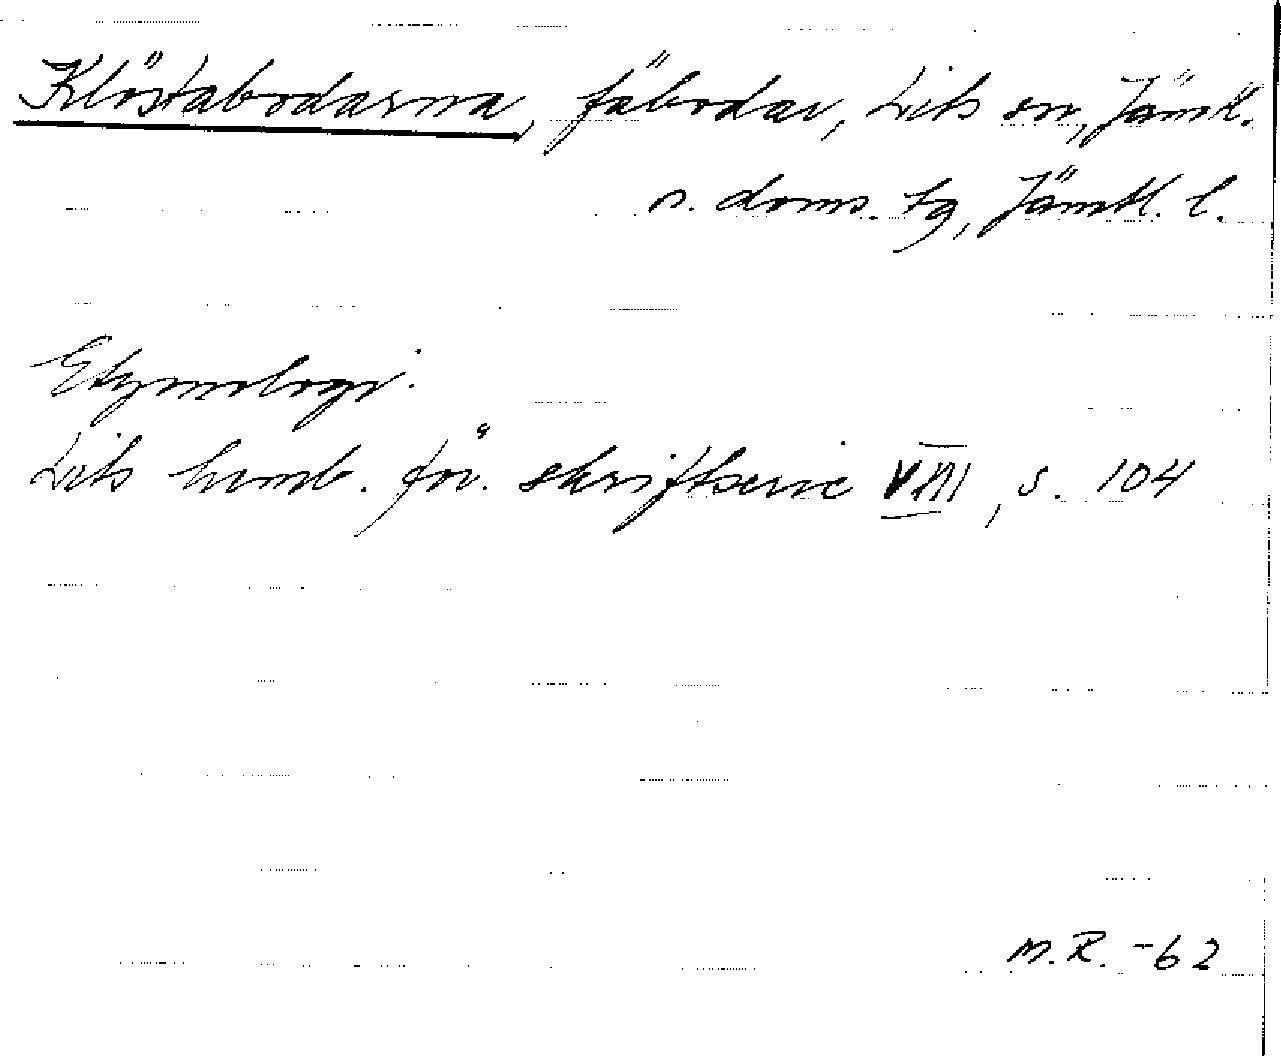 Klöstabodarna, fäbodar, Lits sn, Jämtl.
n. doms. tg, Jämtl. l.
Etymologi:
Lits hemb. för. skriftserie VIII, s. 104
M.R. -62